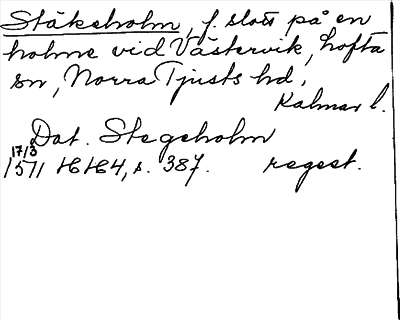 Stäkeholm, f. slott på en
holme vid Västervik, Lofta
sn, Norra Tjusts hd,
Kalmar l.
Dat. Stegeholm
17/3
1571 HH4, s. 387. regest.